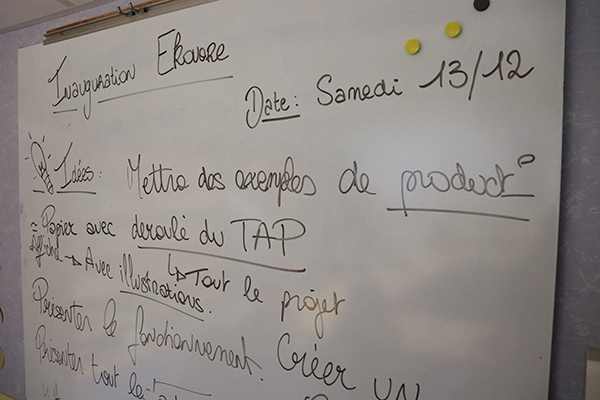 Inauguration Ekovore
Date: Samedi 13/12
Idées: Mettre des exemples de product°
= Papier avec deroulé du TAP
Affiche → Avec illustrations. ↳ Tout le projet
Présenter le fonctionnement. Créer un
Présenter tout le